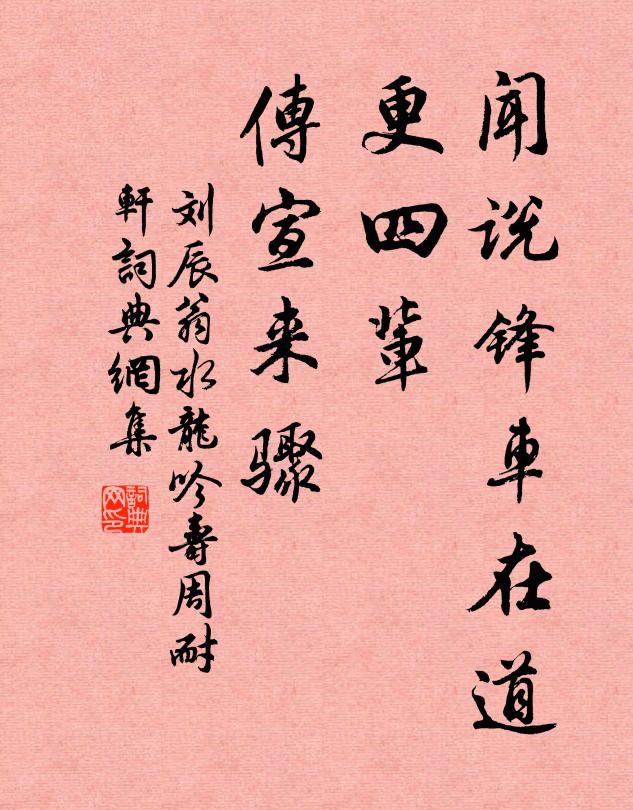 闻说锋車在道
更四輩
傳宣来骤
刘辰翁水龍吟壽周耐
軒詞典網集
詞典网印